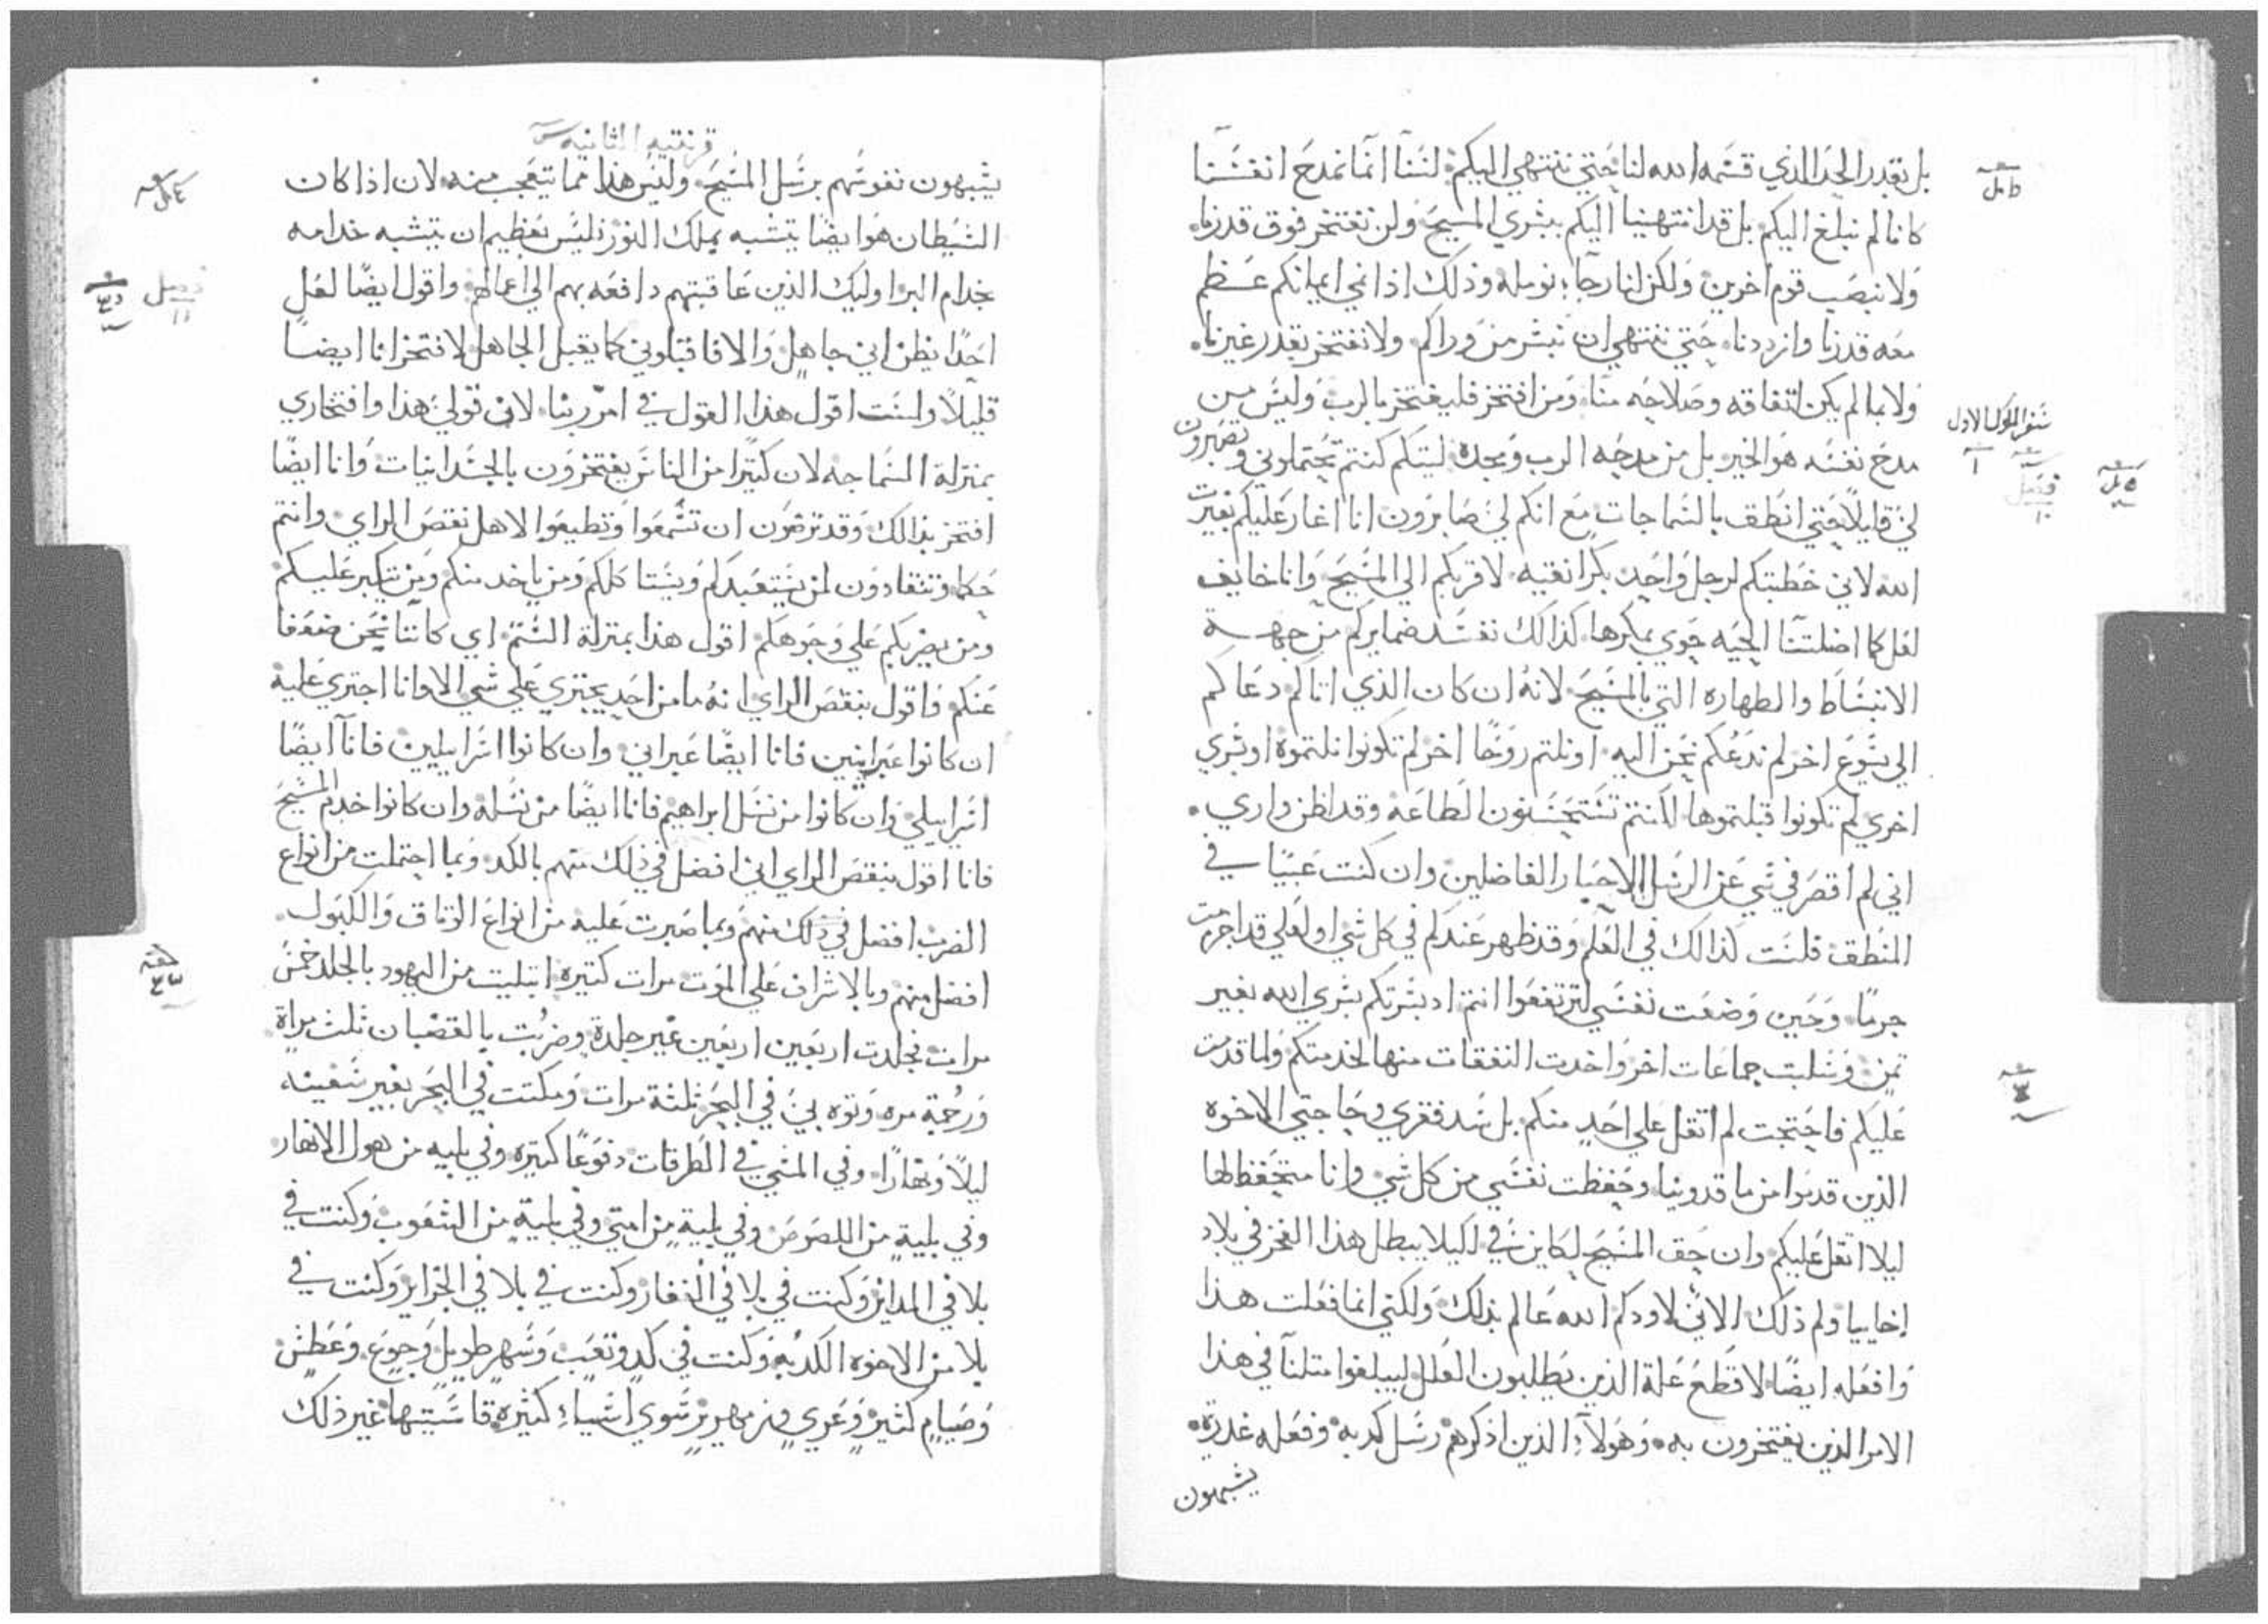 بل بقدر الحد الذي قسمه الله لنا حتي ننتهي اليكم لسنا انما نمدح انفسنا
كانا لم نبلغ اليكم بل قد انتهينا اليكم ببشري المسيح ولن نفتخر فوق قدرنا
ولا بنصب قوم اخرين ولكن لنا رجاء نومله وذلك اذا نمي ايمانكم عظم
معه قدرنا وازددنا حتي ننتهي ان نبشر من وراكم ولا نفتخر بقدر غيرنا
ولا بما لم يكن اتفاقه وصلاحه منا ومن افتخر فليفتخر بالرب وليس من
مدح نفسه هو الخير بل من مدحه الرب ومجده ليتكم كنتم تحتملوني وتصبرون
لي قليلا حتي انطق بالسماجات مع انكم لي صابرون انا اغار عليكم بغيرت
الله لاني خطبتكم لرجل واحد بكرا نقيه لاقربكم الي المسيح وانا خايف
لعل كما اضلت الحيه حوي بمكرها كذلك تفسد ضمايركم من جهة
الانبساط والطهاره التي بالمسيح لانه ان كان الذي اتاكم دعاكم
الي يسوع اخر لم ندعكم نحن اليه او نلتم روحا اخر لم تكونوا نلتموه او بشري
اخري لم تكونوا قبلتموها لكنتم تستحسنون الطاعه وقد اظن واري
اني لم اقصر في شي عن الرسل الاحبار الفاضلين وان كنت عييا في
المنطق فلست كذالك في العلم وقد ظهر عندكم في كل شي او لعلي قد اجرمت
جرما وحين وضعت نفسي لترتفعوا انتم اد بشرتكم بشري الله بغير
ثمن وسلبت جماعات اخر واخدت النفقات منها لخدمتكم ولما قدمت
عليكم فاحتجت لم اثقل علي احد منكم بل سد فقري وحاجتي الاخوه
الذين قدموا من ماقدونيا وحفظت نفسي من كل شي وانا متحفظ لها
ليلا اثقل عليكم وان حق المسيح لكاين في لكيلا يبطل هذا الفخر في بلاد
اخاييا ولم ذلك الاني لاودكم الله عالم بذلك ولكني انما فعلت هذا
وافعله ايضا لاقطع علة الذين يطلبون العلل ليبلغوا مثلنا في هذا
الامر الذين يفتخرون به وهولاء الذين اذكرهم رسل كدبه وفعله غدرة
يشبهون
سفر الملوك الاول
فصل
١٠
قرنتيه الثانيه
يشبهون نفوسهم برسل المسيح وليس هذا مما يتعجب منه لان اذا كان
الشيطان هو ايضا يتشبه بملك النور فليس بعظيم ان يتشبه خدامه
بخدام البر اوليك الذين عاقبتهم دافعه بهم الي اعمالهم واقول ايضا لعل
احدا يظن اني جاهل والا فاقبلوني كما يقبل الجاهل لافتخر انا ايضا
قليلا ولست اقول هذا القول في امر ربنا لان قولي هذا وافتخاري
بمنزلة السماجه لان كثيرا من الناس يفتخرون بالجسدانيات وانا ايضا
افتخر بذالك وقد ترضون ان تسمعوا وتطيعوا لاهل نقص الراي وانتم
حكما وتنقادون لمن يستعبدكم ويستاكلكم ومن ياخد منكم ومن يتكبر عليكم
ومن يضربكم علي وجوهكم اقول هذا بمنزلة الشتم اي كاننا نحن ضعفا
عنكم واقول بنقص الراي انه ما من احد يجتري علي شي الا وانا اجتري عليه
ان كانوا عبرانيين فانا ايضا عبراني وان كانوا اسراييليين فانا ايضا
اسراييلي وان كانوا من نسل ابراهيم فانا ايضا من نسله وان كانوا خدم المسيح
فانا اقول بنقص الراي اني افضل في ذلك منهم بالكد وبما احتملت من انواع
الضرب افضل في ذلك منهم وبما صبرت عليه من انواع الوثاق والكبول
افضل منهم وبالاشراف علي الموت مرات كتيره ابتليت من اليهود بالجلد خمس
مرات فجلدت اربعين اربعين غير جلدة وضربت بالقضبان ثلث مراة
ورجمة مره وتوه بي في البحر ثلثة مرات ومكتت في البحر بغير سفينه
ليلا ونهارا وفي المشي في الطرقات دفوعا كتيره وفي بليه من هول الانهار
وفي بلية من اللصوص وفي بلية من امتي وفي بلية من الشعوب وكنت في
بلا في المداين وكنت في بلا في القفار وكنت في بلا في الجزاير وكنت في
بلا من الاخوه الكدبه وكنت في كد وتعب وسهر طويل وجوع وعطش
وصيام كثير وعري وزمهرير سوي اشياء كثيره قاسيتها غير ذلك
فصل
١١